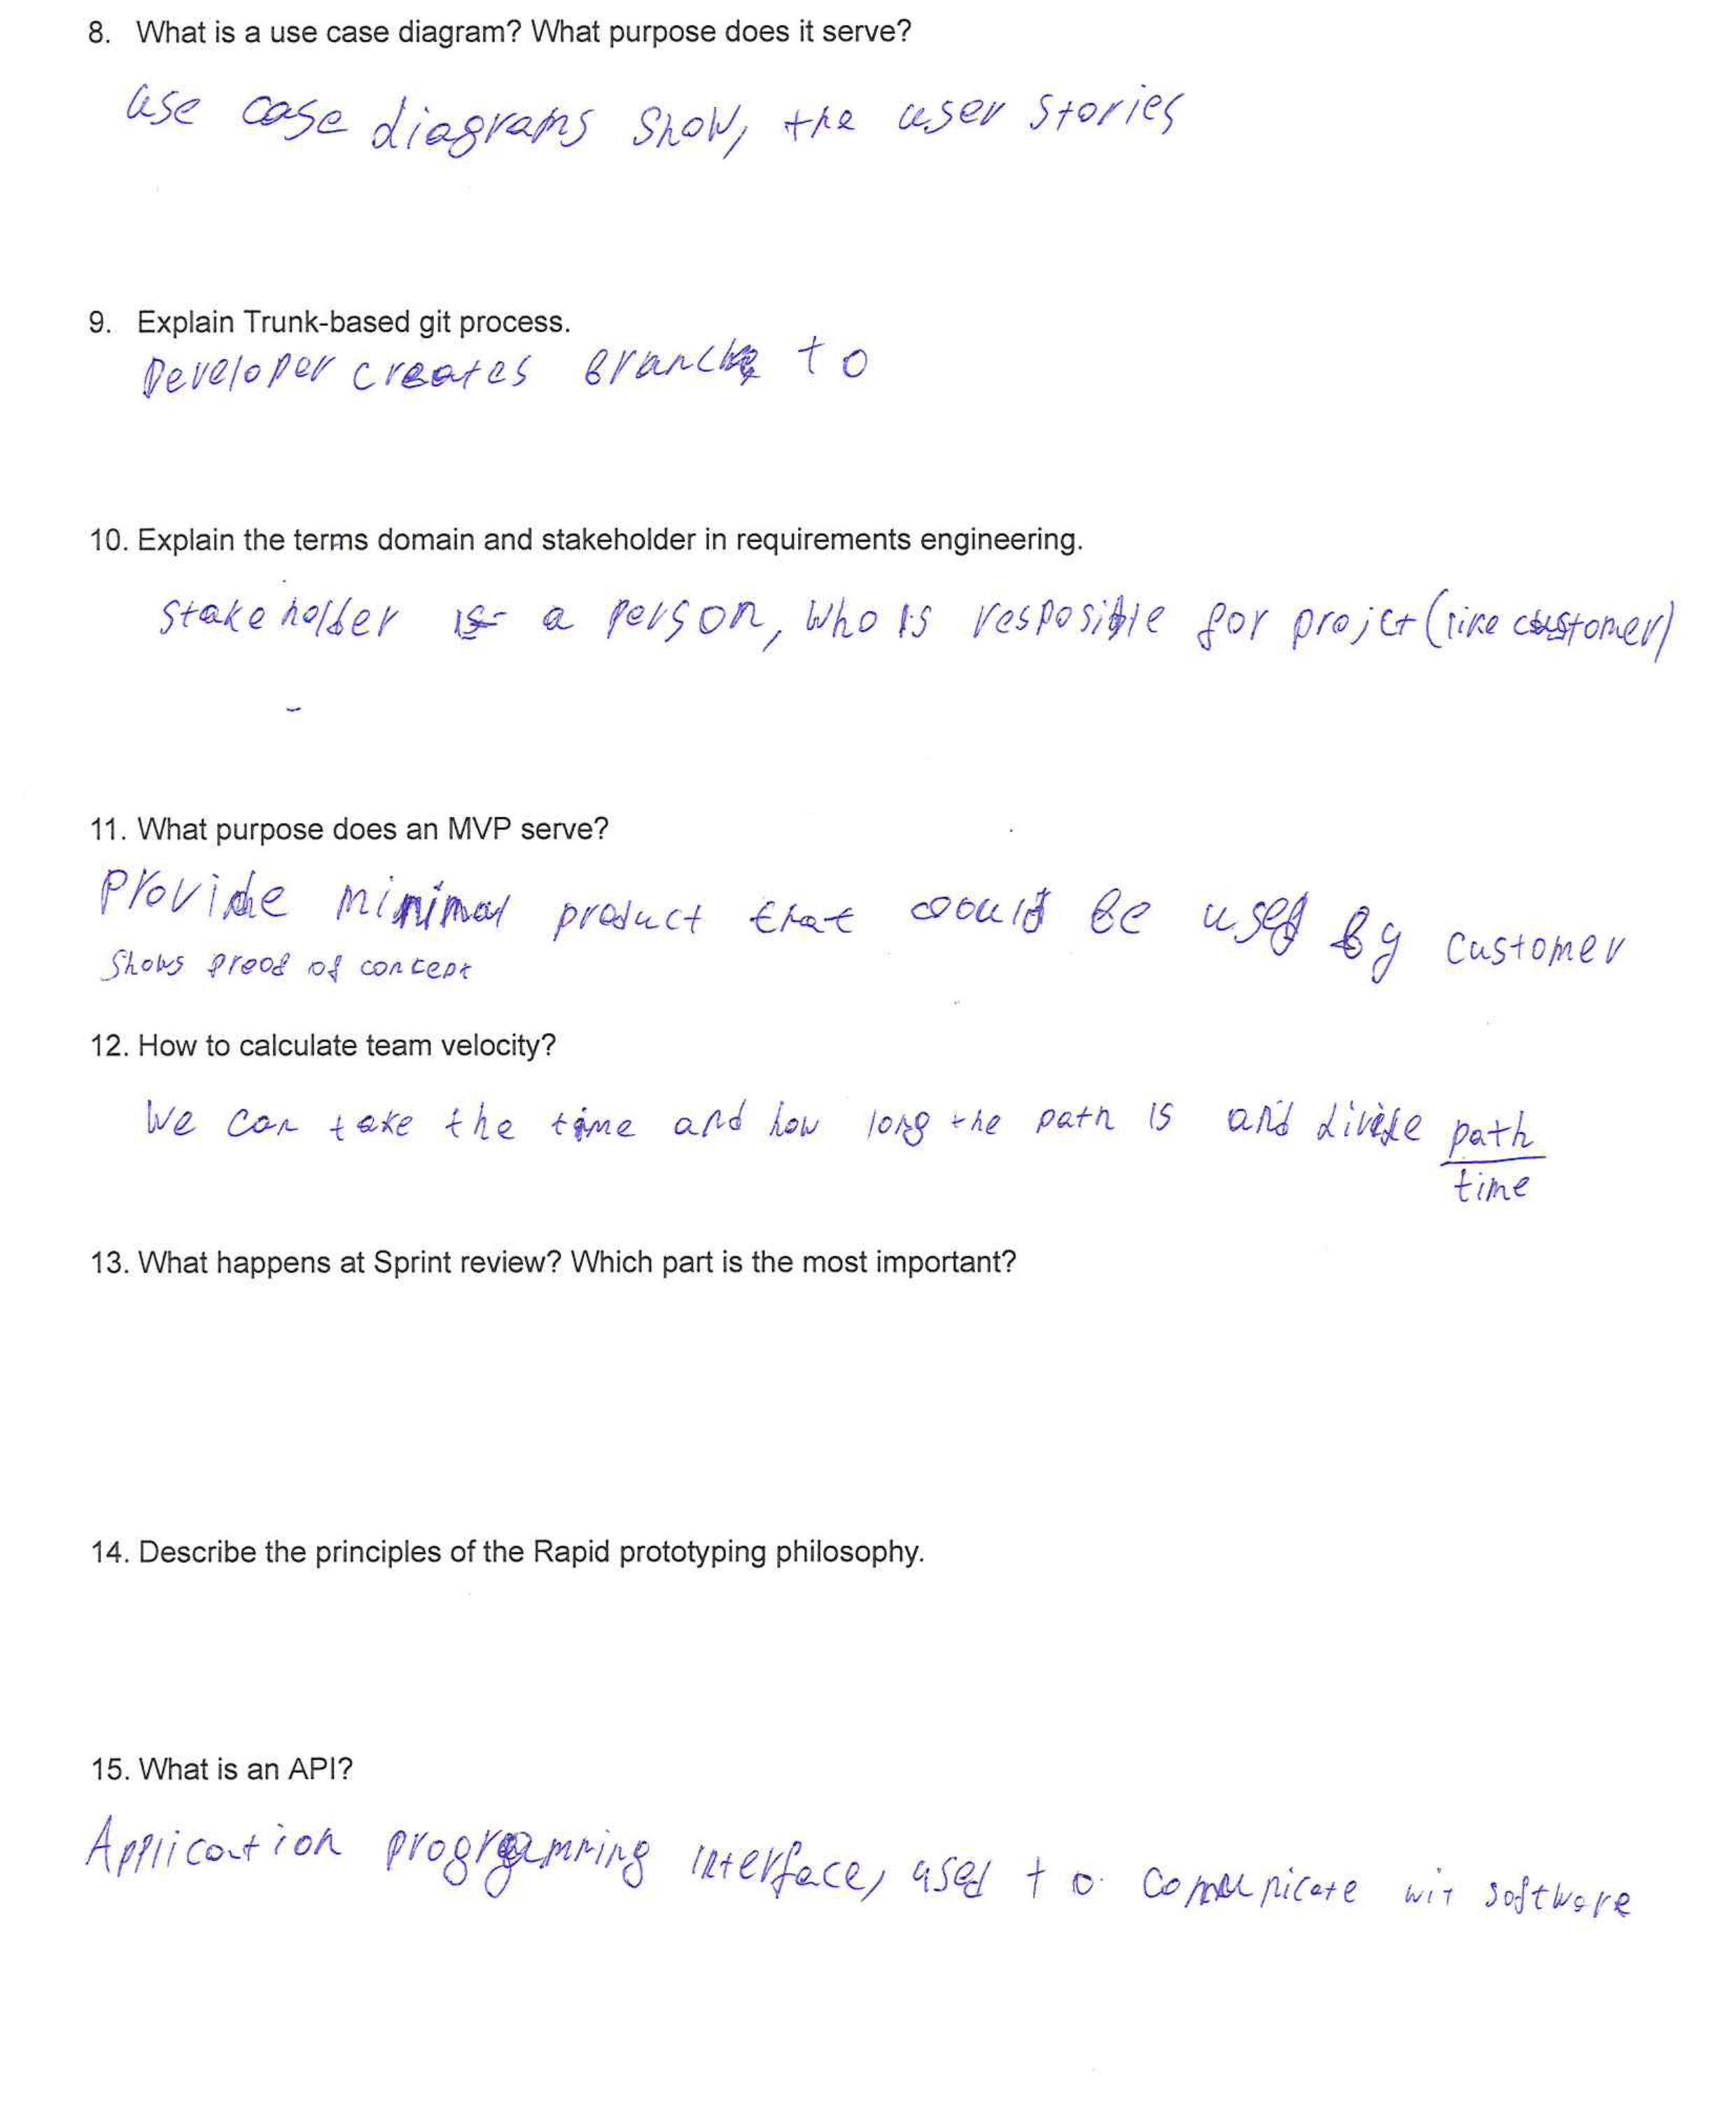 8. What is a use case diagram? What purpose does it serve?
use case diagrams show, the user stories
9. Explain Trunk-based git process.
Developer creates branch to
10. Explain the terms domain and stakeholder in requirements engineering.
Stakeholder is a person, who is resposible for projct (like customer)
11. What purpose does an MVP serve?
Provide minimal product that could be used by customer
Shows proof of concept
12. How to calculate team velocity?
We can take the time and how long the path is and divide path
time
13. What happens at Sprint review? Which part is the most important?
14. Describe the principles of the Rapid prototyping philosophy.
15. What is an API?
Application programming interface, used to communicate wit software